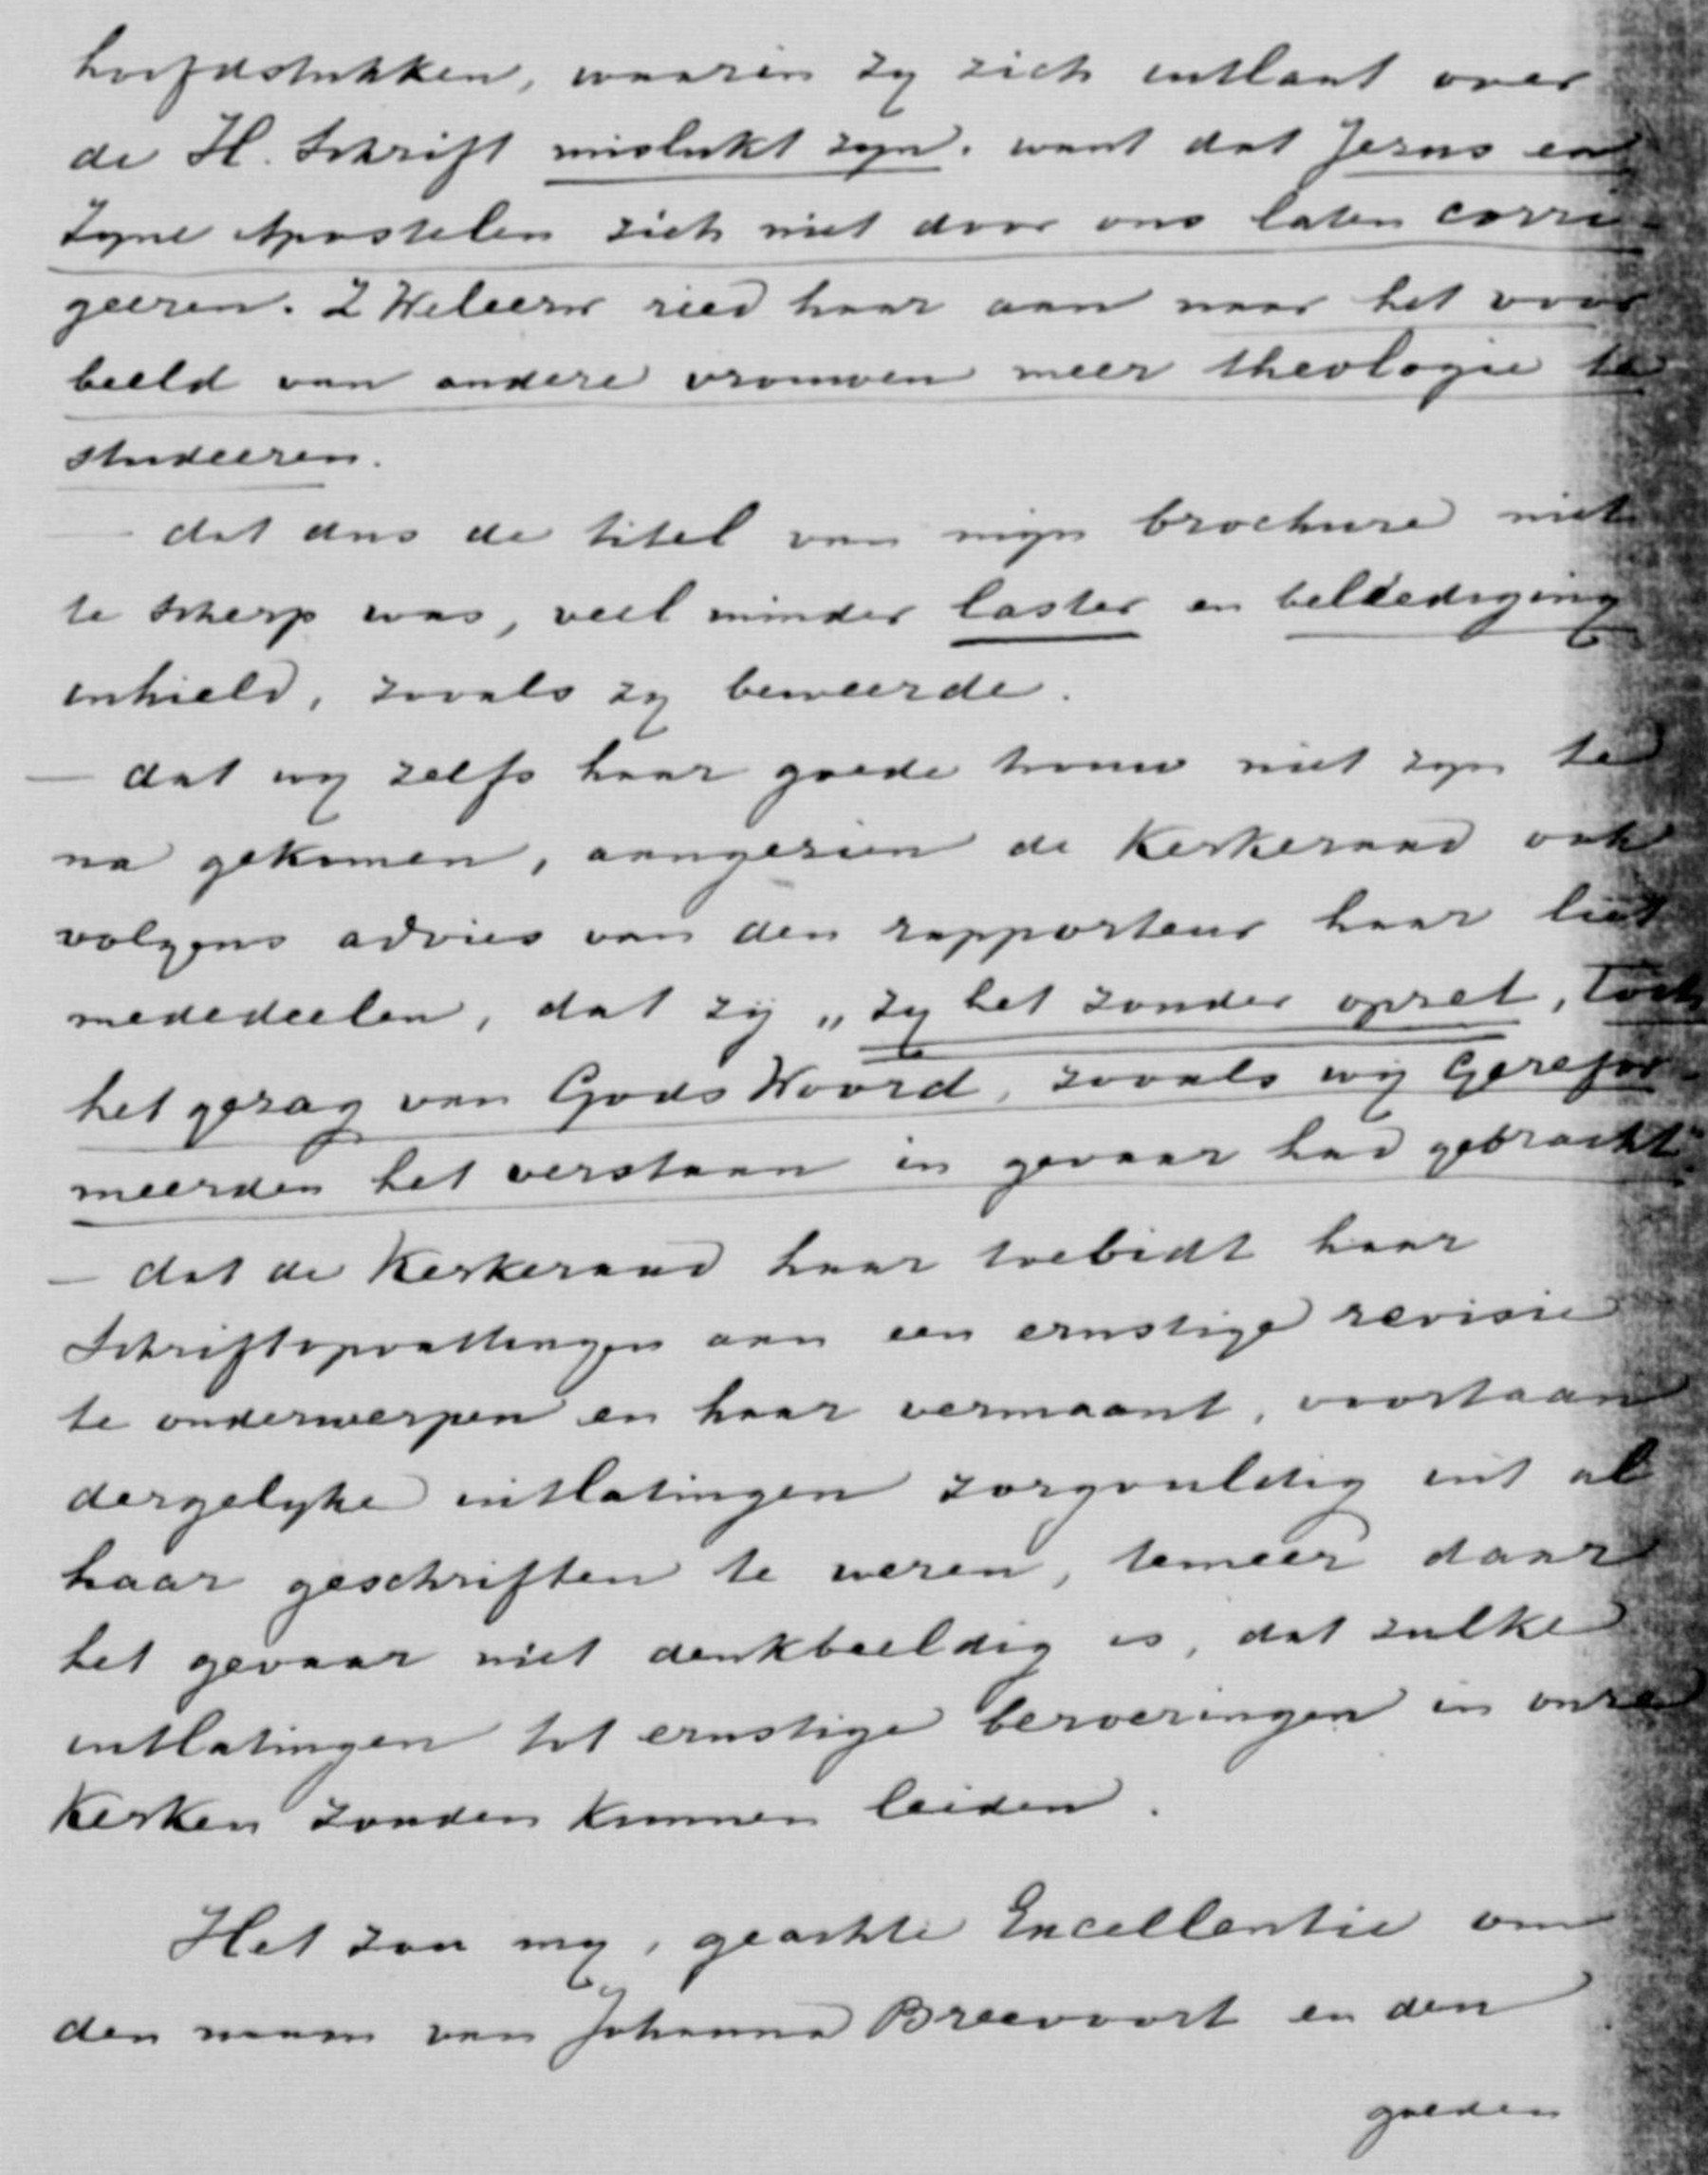 hoofdstukken, waarin zy zich uitlaat over
de H. Schrift mislukt zyn. want dat Jezus en
Zyne Apostelen zich niet door ons laten corri-
geeren. ZWeleerw ried haar aan naar het voor
beeld van andere vrouwen meer theologie te
studeeren.
- dat dus de titel van mijn brochure niet
te scherp was, veel minder laster en beleediging
inhield, zooals zy beweerde.
- dat wy zelfs haar goede trouw niet zyn te
na gekomen, aangezien de Kerkeraad ook
volgens advies van den rapporteur haar liet
mededeelen, dat zij „zy het zonder opzet, toch
het gezag van Gods Woord, zooals wij Gerefor-
meerden het verstaan in gevaar had gebracht"
- dat de Kerkeraad haar toebidt haar
Schriftopvattingen aan een ernstige revisie
te onderwerpen en haar vermaant, voortaan
dergelyke uitlatingen zorgvuldig uit al
haar geschriften te weren, temeer daar
het gevaar niet denkbeeldig is, dat zulke
uitlatingen tot ernstige beroeringen in onze
Kerken zouden kunnen leiden.
Het zou my, geachte Excellentie om
den naam van Johanna Breevoort en den
goeden